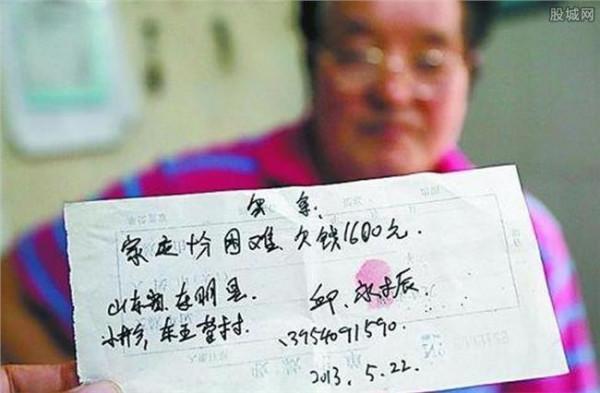 股城网
欠条:
家庭十分困难欠钱1600元.
山东省东明县.
小井乡,东王营村
邱
13954091590.
2013.5.22.